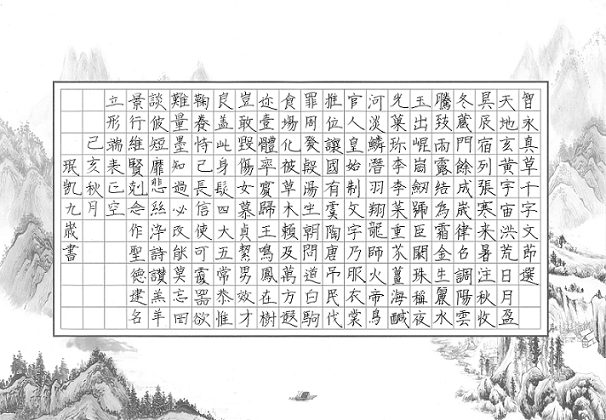 智永真草千字文節選
天地玄黃宇宙洪荒日月盈
昃辰宿列張寒来暑往秋收
冬蔵閏餘成歲律召調陽雲
騰致雨露結為霜金生麗水
玉出崐崗劒號巨闕珠稱夜
光菓珎李柰菜重芥薑海醎
河淡鱗潛羽翔龍師火帝鳥
官人皇始制文字乃服衣裳
推位讓國有虞陶唐吊民伐
罪周發殷湯坐朝問道白駒
食場化被草木賴及萬方遐
迩壹體率賓歸王鳴鳳在樹
豈敢毀傷女慕貞絜男效才
良盖此身髮四大五常恭惟
鞠養恃己長信使可覆器欲
難量墨知過必改能莫忘罔
談彼短靡悲絲淬詩讚羔羊
景行維賢剋念作聖德建名
立形端表正空
己亥秋月
珉凱九歲書